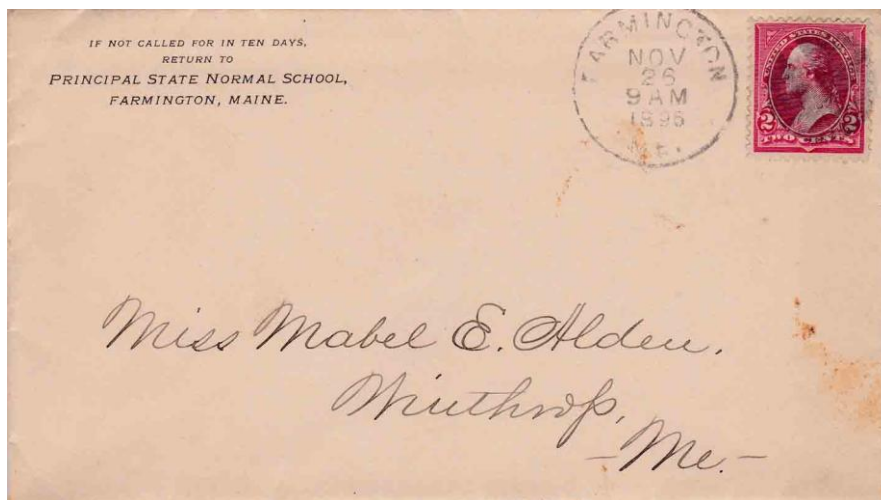 IF NOT CALLED FOR IN TEN DAYS,
RETURN TO
PRINCIPAL STATE NORMAL SCHOOL,
FARMINGTON, MAINE.
FARMINGTON
NOV
26
9 AM
1896
ME.
UNITED STATES POSTAGE
2 2
TWO CENTS
Miss Mabel E. Alden.
Winthrop,
-Me.-